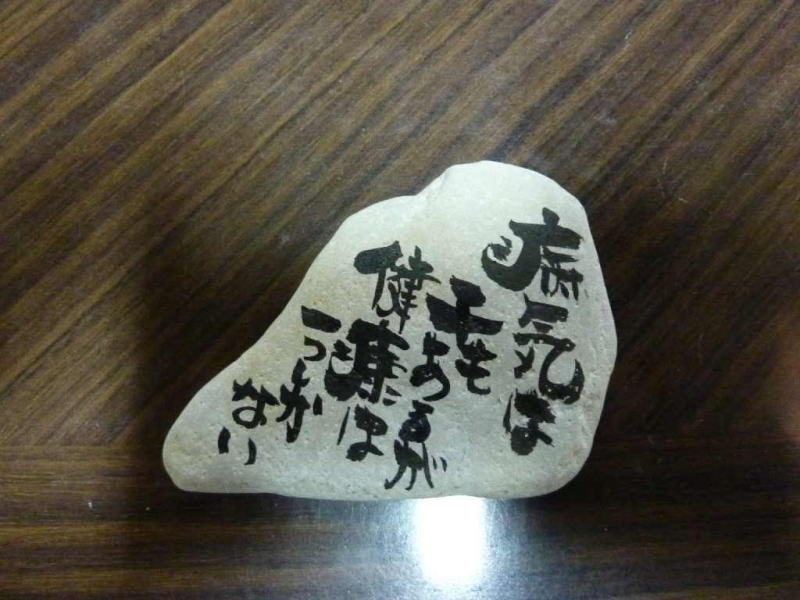 病気は
千もあるが
健康は
一つしか
ない